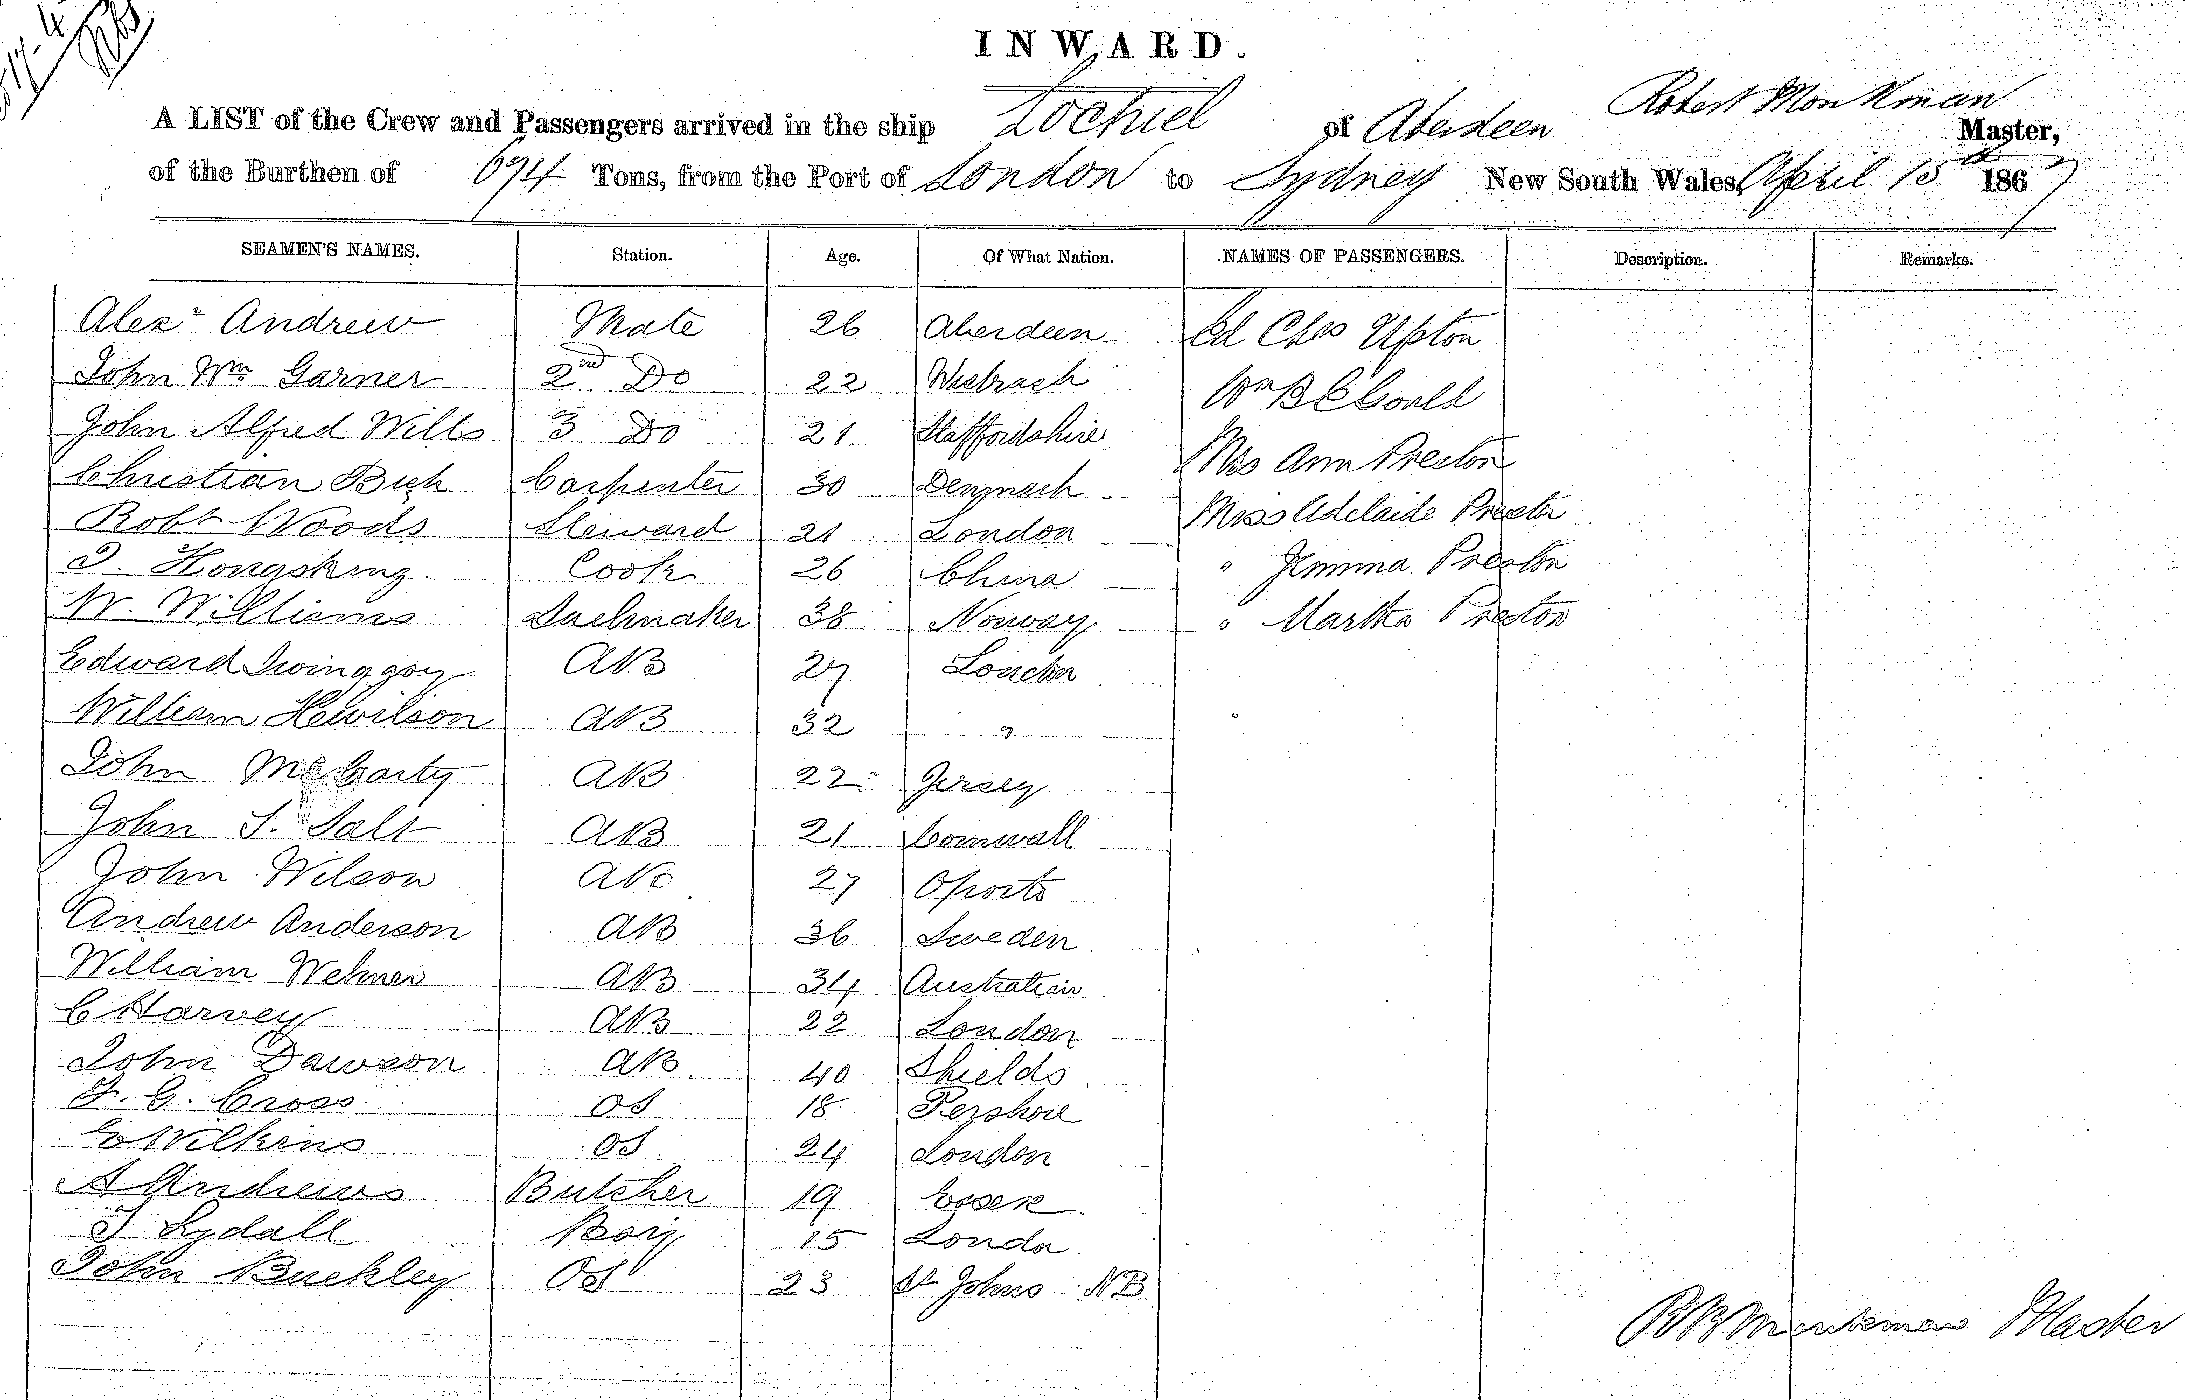 INWARD.
Robert Monkman
A LIST of the Crew and Passengers arrived in the ship Lochiel of Aberdeen Master,
of the Burthen of 694 Tons, from the Port of London to Sydney New South Wales, April 15th 1867
SEAMEN'S NAMES. Station. Age. Of What Nation. NAMES OF PASSENGERS. Description. Remarks.
Alexr Andrew Mate 26 Aberdeen Ed Chas Upton
John Wm Garner 2nd Do 22 Wisbeach Wm B E Gould
John Alfred Wills 3 Do 21 Staffordshire Mrs Ann Preston
Christian Buck Carpenter 30 Denmark Miss Adelaide Preston
Robt Woods Steward 21 London " Jemima Preston
Cook 26 China " Martha Preston
W. Williams Sailmaker 38 Norway
Edward AB 27 London
William Hewilson AB 32 "
John McCarty AB 22 Jersey
John S. Salt AB 21 Cornwall
John Wilson AB 27 Oporto
Andrew Anderson AB 36 Sweden
William AB 34 Australian
C Harvey AB 22 London
John Dawson AB 40 Shields
F. G. Cross OS 18 Pershore
E Wilkins OS 24 London
A Andrews Butcher 19 Essex
T Lydall Boy 15 London
John Buckley OS 23 St Johns NB
Monkman Master